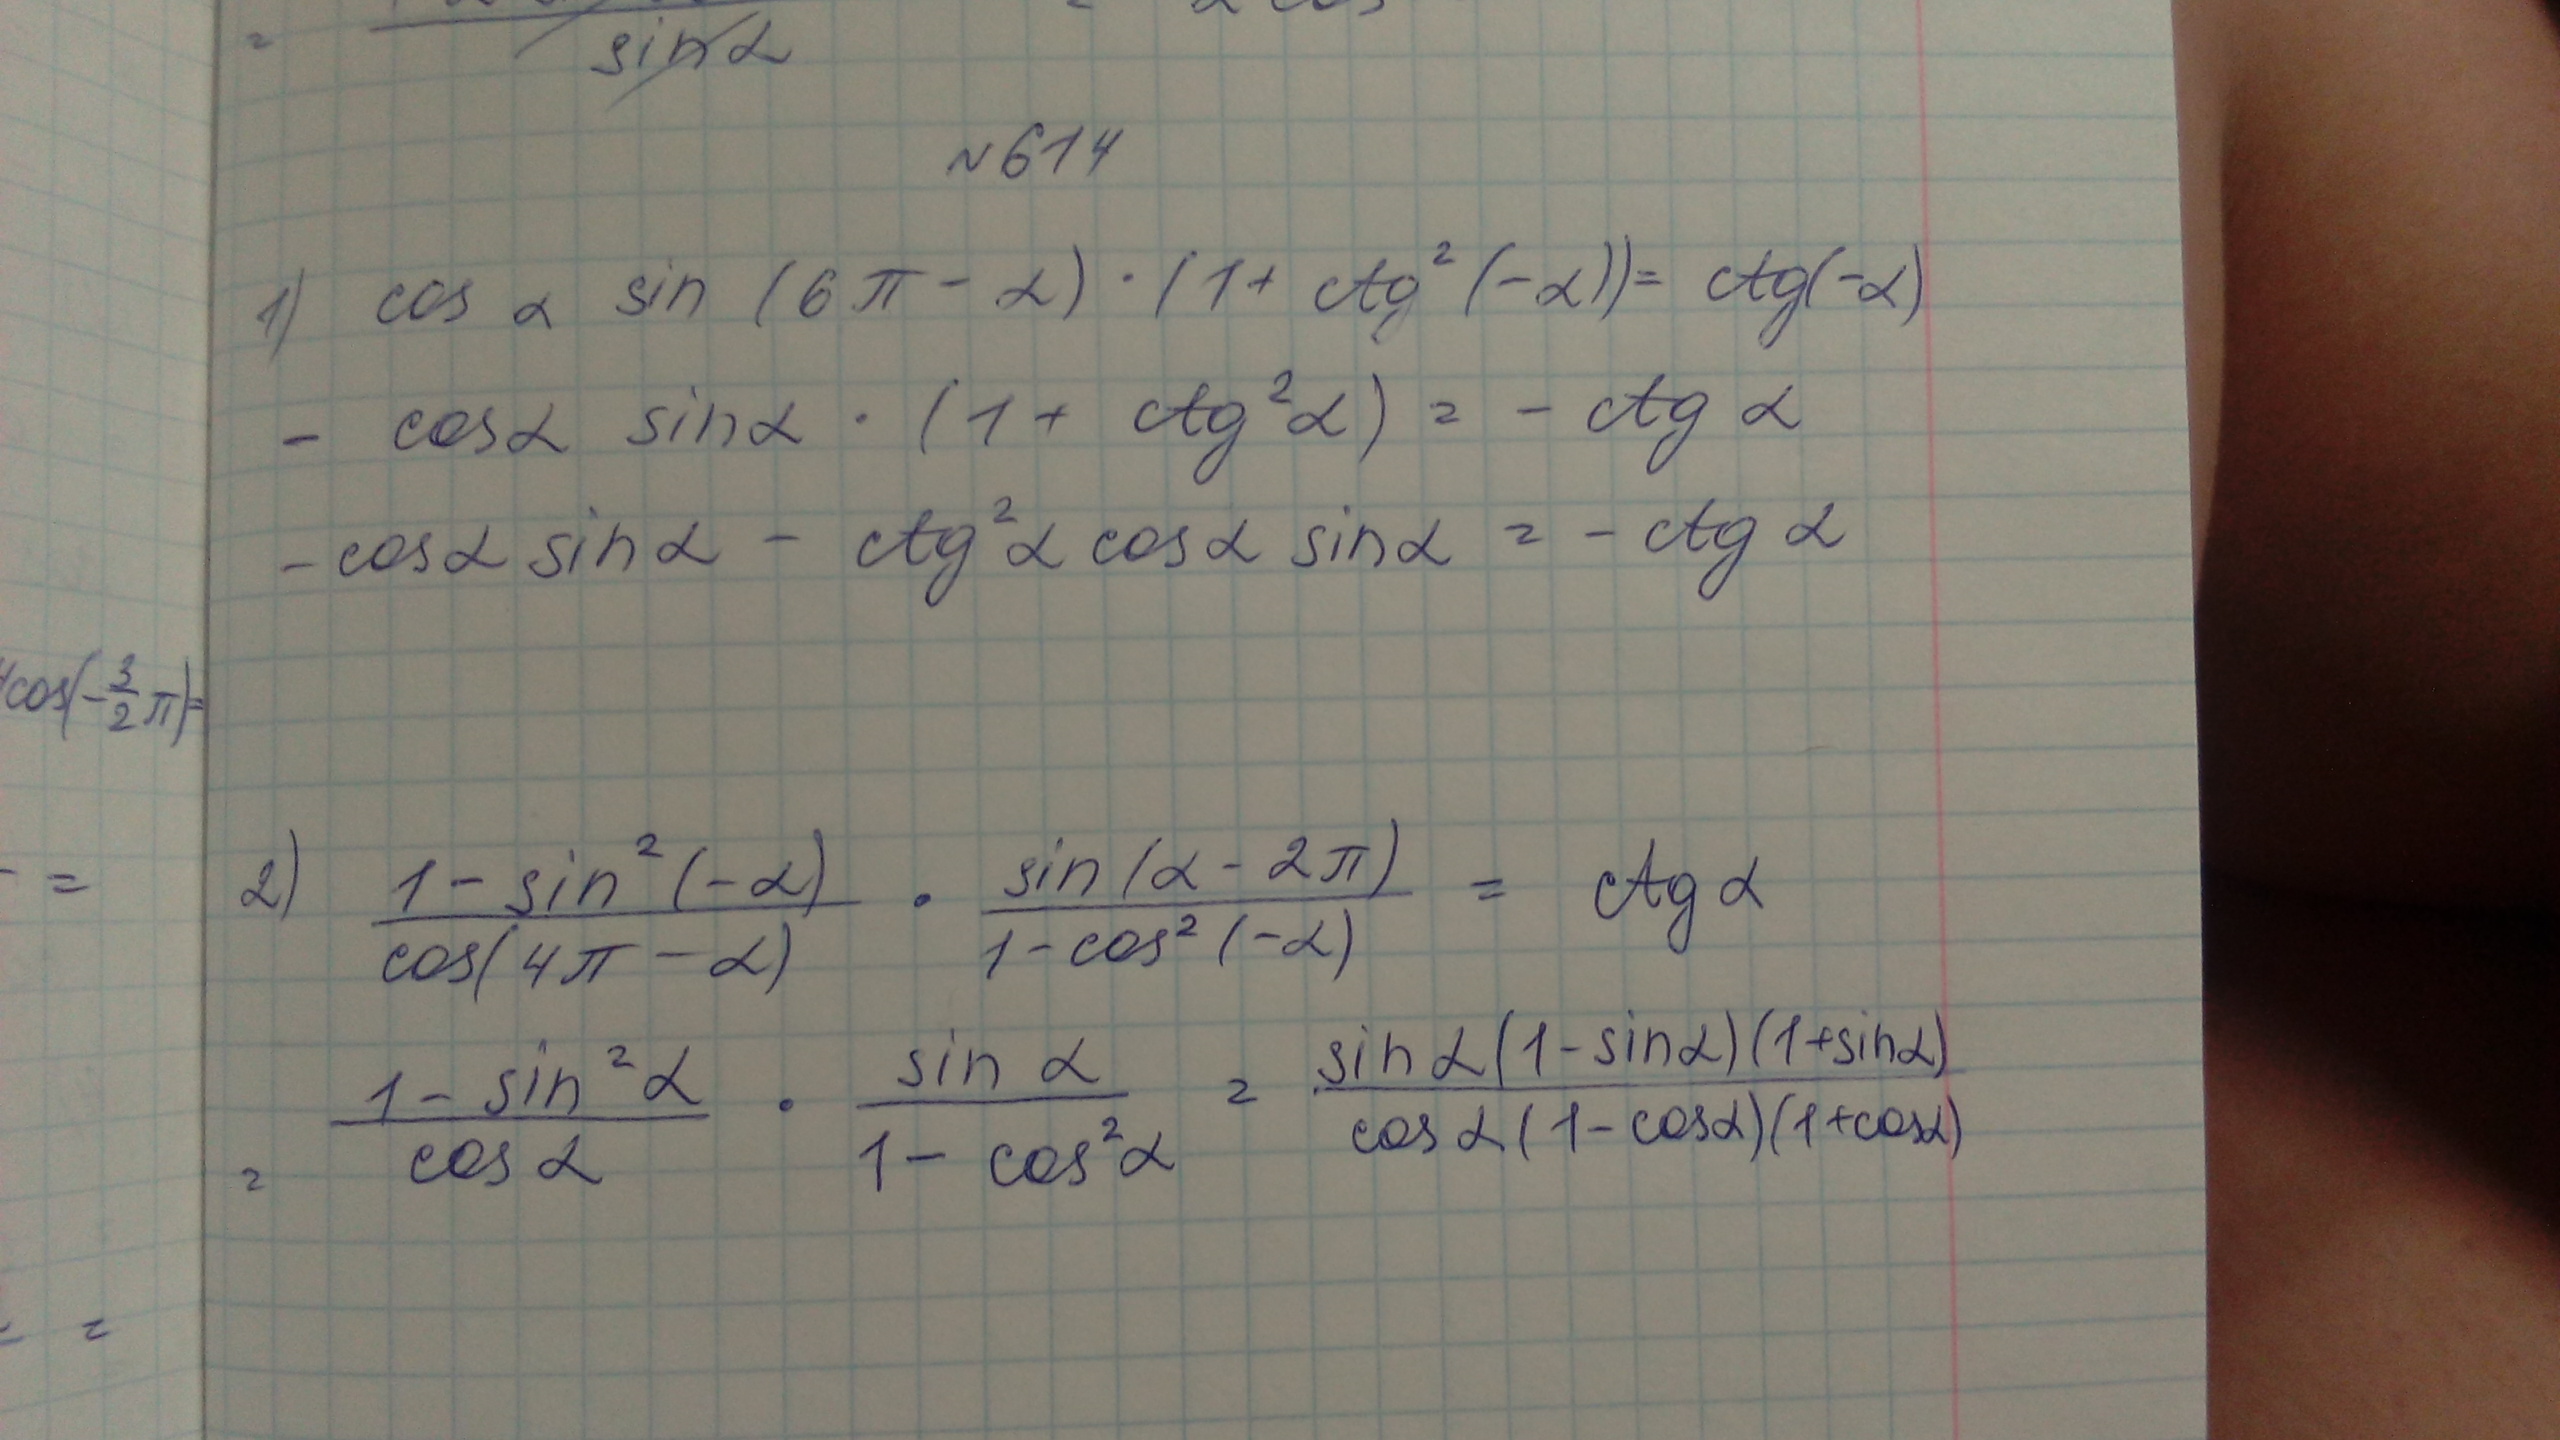 = sin α = 2 cos
№614
1) cos α sin (6π - α) · (1 + ctg² (-α)) = ctg(-α)
- cos α sin α · (1 + ctg² α) = - ctg α
- cos α sin α - ctg² α cos α sin α = - ctg α
cos(-3/2 π) =
= 2) (1 - sin² (-α))/(cos(4π - α)) · (sin (α - 2π))/(1 - cos² (-α)) = ctg α
= (1 - sin² α)/(cos α) · (sin α)/(1 - cos² α) = (sin α (1 - sin α)(1 + sin α))/(cos α (1 - cos α)(1 + cos α))
=